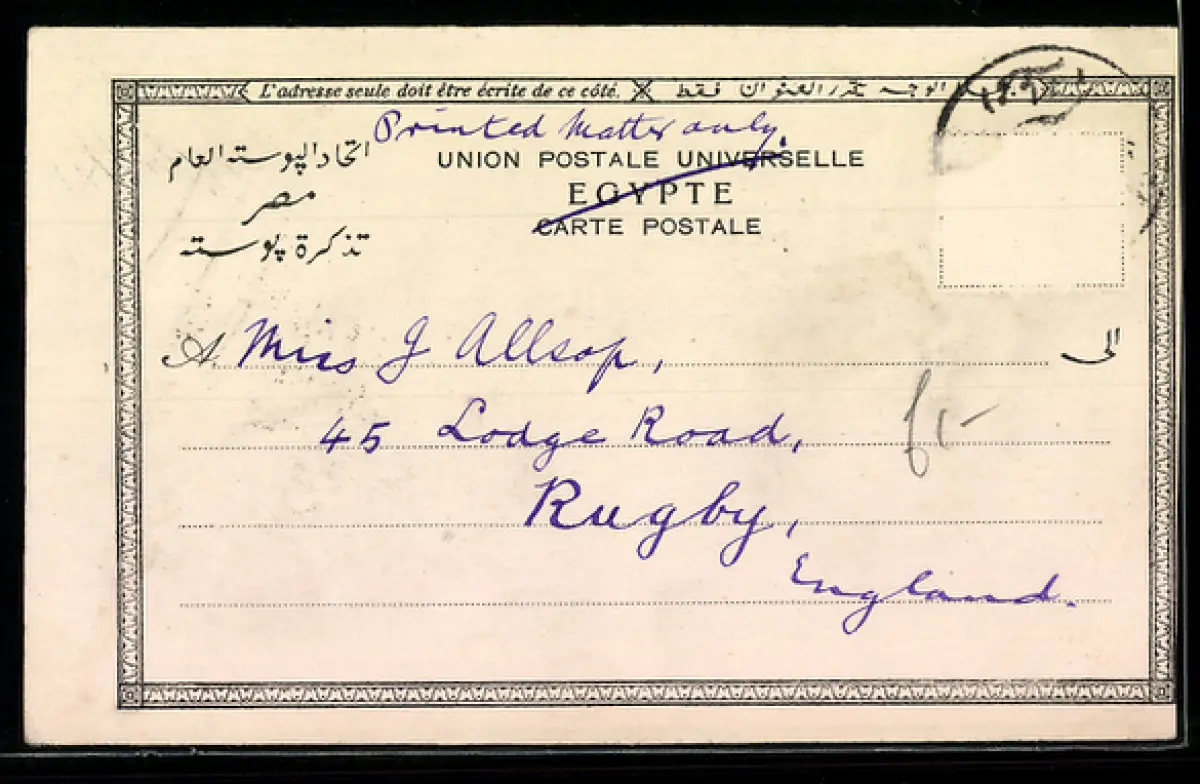 L'adresse seule doit être écrite de ce côté.
Printed Matter only.
UNION POSTALE UNIVERSELLE
اتحاد الپوسته العام
EGYPTE
مصر
CARTE POSTALE
تذكرة پوسته
A Miss J Allsop,
الى
45 Lodge Road,
Rugby,
England.